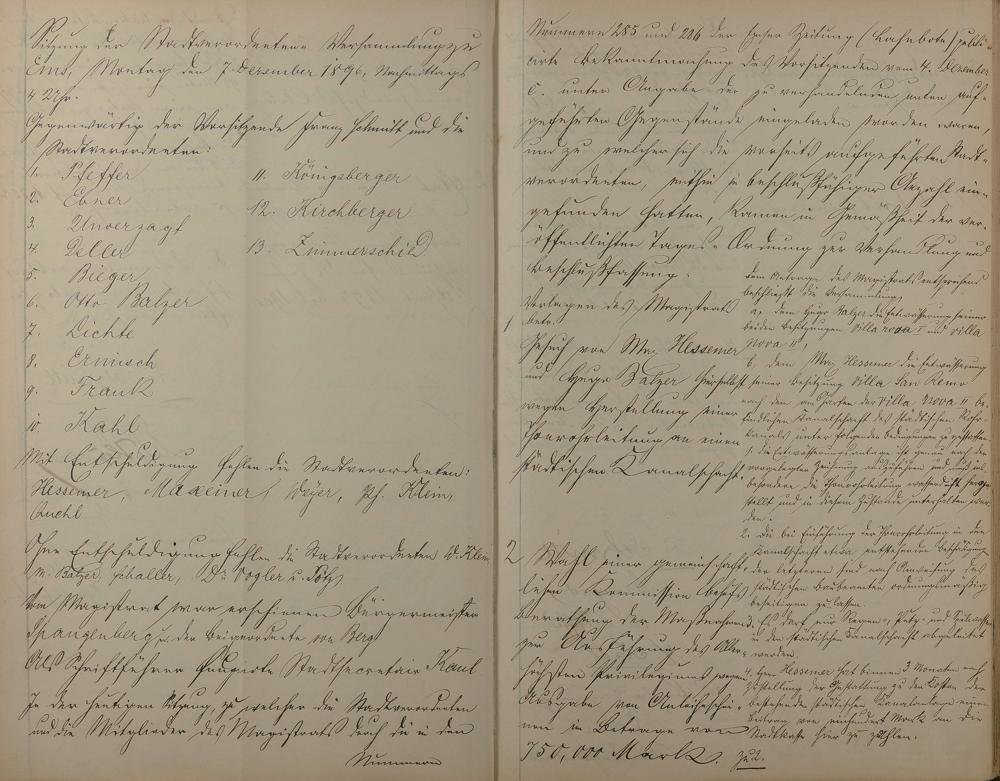 Sitzung der Stadtverordneten-Versammlung zu
Ems, Montag den 7. Dezember 1896, Nachmittags
4 Uhr.
Gegenwärtig der Vorsitzende Franz Schmitt und die
Stadtverordneten:
1. Pfeffer
2. Ebner
3. Unverzagt
4. Deller
5. Bieger
6. Otto Balzer
7. Lichte
8. Ermisch
9. Frank
10. Kahl
11. Königsberger
12. Kirchberger
13. Zimmerschied
Mit Entschuldigung fehlen die Stadtverordneten:
Hessemer, Maxeiner, Weyer, Ph. Klein,
Ruehl
Ohne Entschuldigung fehlen die Stadtverordneten W. Klein
M. Balzer, Schaller, Dr. Vogler u.
Vom Magistrat war erschienen Bürgermeister
Spangenberg u. der Beigeordnete von Berg
Als Schriftführer fungirte Stadtsecretair Kaul
In der heutigen Sitzung, zu welcher die Stadtverordneten
und die Mitglieder des Magistrats durch die in den
Nummern
Nummern 285 und 286 der Emser Zeitung (Lahnbote) publi-
cirte Bekanntmachung des Vorsitzenden vom 4. Dezember
c. unter Angabe der zu verhandelnden, unten auf-
geführten Gegenstände eingeladen worden waren,
und zu welcher sich die vorseits aufgeführten Stadt-
verordneten, mithin in beschlußfähiger Anzahl ein-
gefunden hatten, kamen in Gemäßheit der ver-
öffentlichten Tages-Ordnung zur Verhandlung und
Beschlußfassung:
Vorlagen des Magistrats
betr.
1 Gesuch von Max Hessemer
und Hugo Balzer hierselbst
wegen Herstellung einer
Thonrohrleitung an einen
städtischen Kanalschacht.
dem Antrage des Magistrats entsprechend
beschließt die Versammlung,
a, dem Hugo Balzer die Entwässerung seiner
beiden Besitzungen Villa nova I und Villa
Nova II,
b, dem Max Hessemer die Entwässerung
seiner Besitzung Villa San Remo
nach dem am Garten der Villa Nova II be-
findlichen Kanalschacht des städtischen Rohr-
kanals unter folgenden Bedingungen zu gestatten:
1. die Entwässerungsanlage ist genau nach der
vorgelegten Zeichnung auszuführen und ins-
besondere die Thonrohrleitung wasserdicht herge-
stellt und in diesem Zustande unterhalten wer-
den.
2. Die bei Einführung der Thonrohrleitung in den
Kanalschacht etwa entstehenden Beschädigungen
der letzteren sind nach Anweisung des
städtischen Baubeamten ordnungsmäßig
beseitigen zu lassen.
3. Es darf nur Regen-, und
in den städtischen Kanalschacht abgeleitet
werden.
4. Herr Hessemer hat binnen 3 Monaten nach
Zustellung der Gestattung zu den Kosten der
bestehenden städtischen Kanalanlage einen
Beitrag von einhundert Mark an die
Stadtkasse hier zu zahlen.
2 Wahl einer gemeinschaft-
lichen Kommission behufs
Berathung der Maßnahmen
zur Ausführung des Aller-
höchsten Privilegiums wegen
Ausgabe von Anleiheschei-
nen im Betrage von
750,000 Mark.
zu 2.